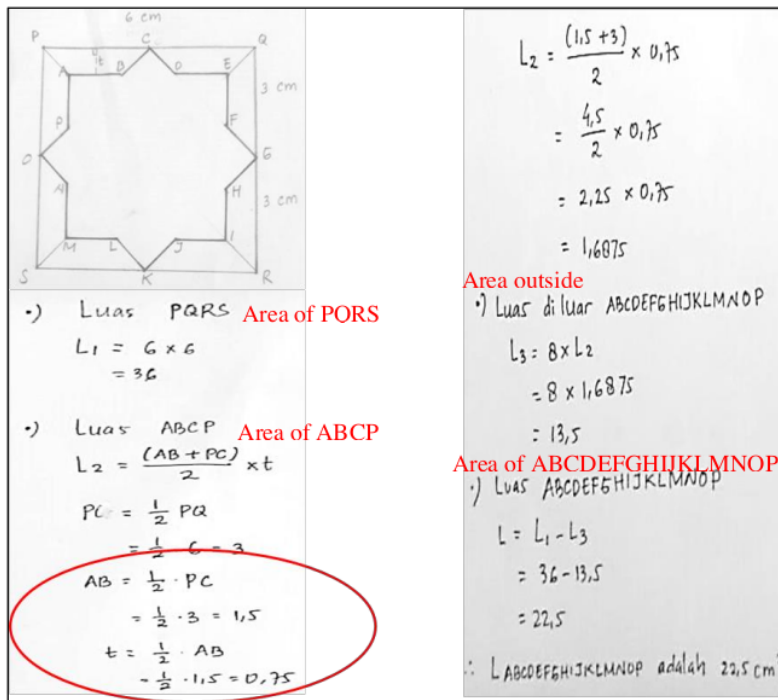 6 cm
P C Q
A t B D E
3 cm
P F
O G
N H
3 cm
M L J I
S K R
•) Luas PQRS Area of PQRS
L1 = 6 × 6
= 36
•) Luas ABCP Area of ABCP
L2 = (AB + PC)/2 × t
PC = 1/2 PQ
= 1/2 · 6 = 3
AB = 1/2 · PC
= 1/2 · 3 = 1,5
t = 1/2 · AB
= 1/2 · 1,5 = 0,75
L2 = (1,5 + 3)/2 × 0,75
= 4,5/2 × 0,75
= 2,25 × 0,75
= 1,6875
Area outside
•) Luas di luar ABCDEFGHIJKLMNOP
L3 = 8 × L2
= 8 × 1,6875
= 13,5
Area of ABCDEFGHIJKLMNOP
•) Luas ABCDEFGHIJKLMNOP
L = L1 - L3
= 36 - 13,5
= 22,5
∴ L ABCDEFGHIJKLMNOP adalah 22,5 cm